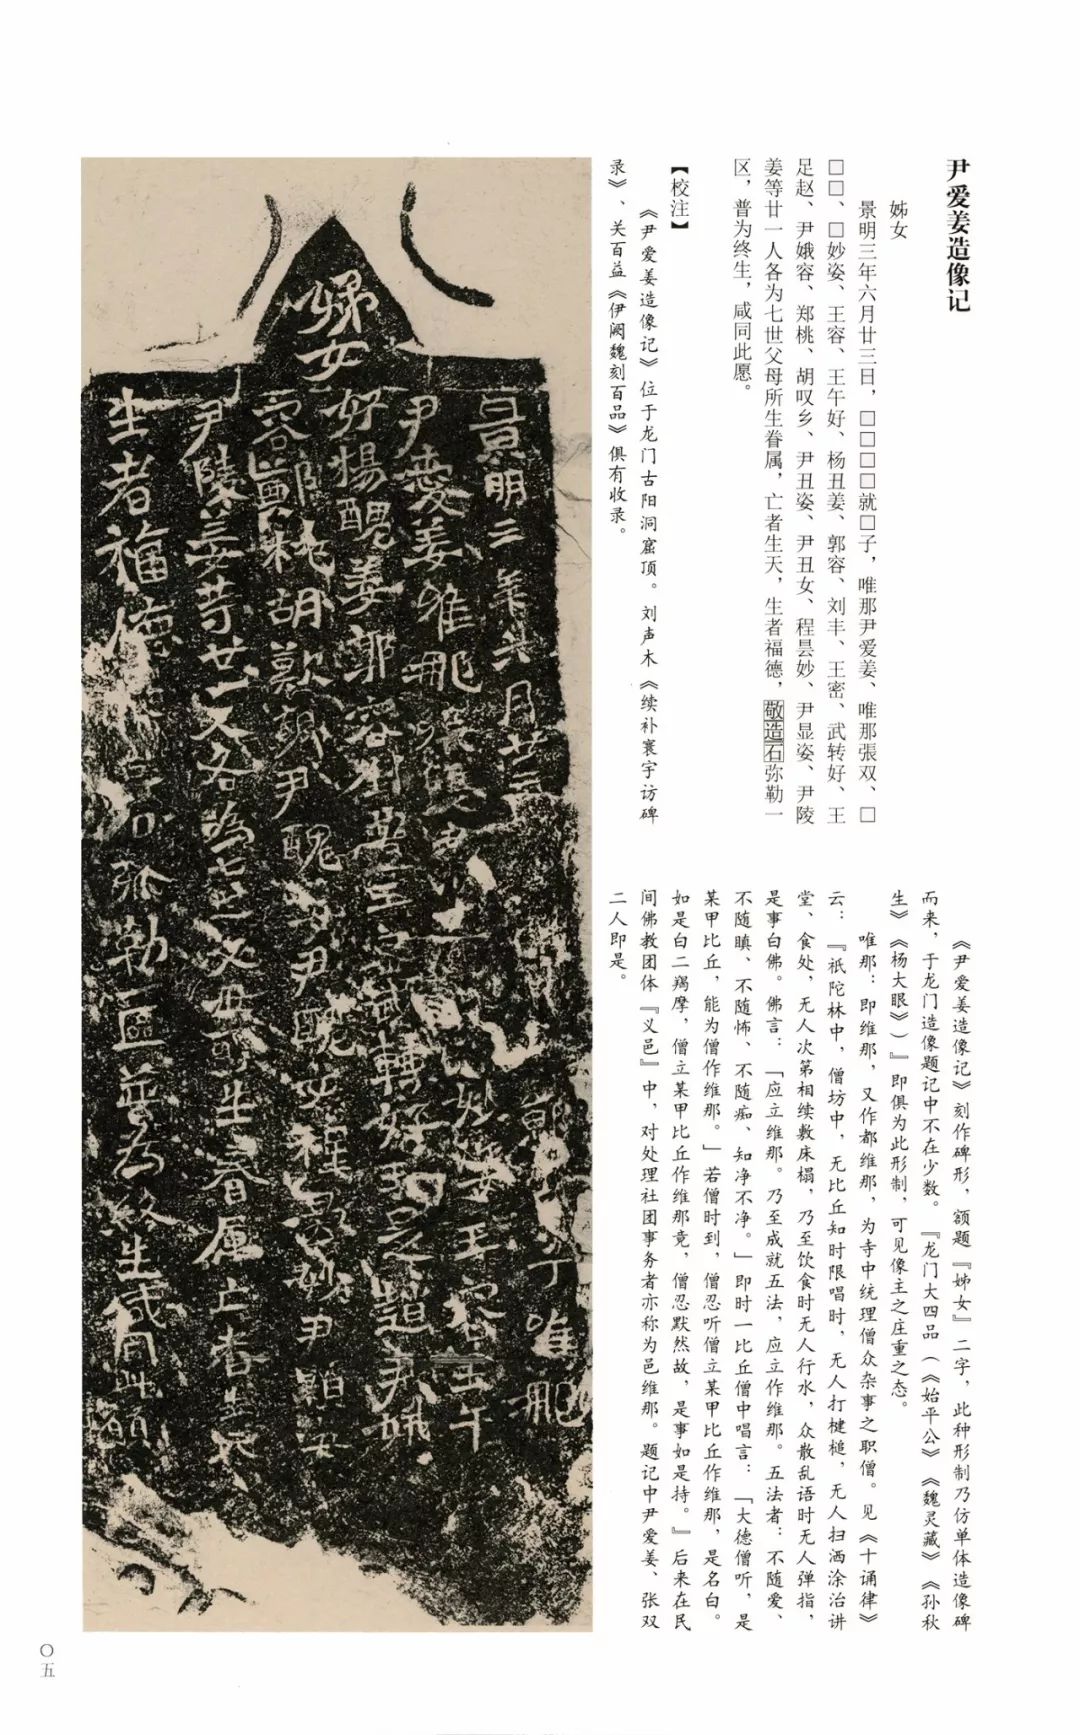 尹爱姜造像记
姊女
景明三年六月廿三日，□□□□就□子，唯那尹爱姜、唯那張双、□
□□、□妙姿、王容、王午好、杨丑姜、郭容、刘丰、王密、武转好、王
足赵、尹娥容、郑桃、胡叹乡、尹丑姿、尹丑女、程昙妙、尹显姿、尹陵
姜等廿一人各为七世父母所生眷属，亡者生天，生者福德，敬造石弥勒一
区，普为终生，咸同此愿。
【校注】
《尹爱姜造像记》位于龙门古阳洞窟顶。刘声木《续补寰宇访碑
录》、关百益《伊阙魏刻百品》俱有收录。
《尹爱姜造像记》刻作碑形，额题『姊女』二字，此种形制乃仿单体造像碑
而来，于龙门造像题记中不在少数。『龙门大四品（《始平公》《魏灵藏》《孙秋
生》《杨大眼》）』即俱为此形制，可见像主之庄重之态。
唯那：即维那，又作都维那，为寺中统理僧众杂事之职僧。见《十诵律》
云：『祇陀林中，僧坊中，无比丘知时限唱时，无人打楗槌，无人扫洒涂治讲
堂、食处，无人次第相续敷床榻，乃至饮食时无人行水，众散乱语时无人弹指，
是事白佛。佛言：「应立维那。乃至成就五法，应立作维那。五法者：不随爱、
不随瞋、不随怖、不随痴、知净不净。」即时一比丘僧中唱言：「大德僧听，是
某甲比丘，能为僧作维那。」若僧时到，僧忍听僧立某甲比丘作维那，是名白。
如是白二羯摩，僧立某甲比丘作维那竟，僧忍默然故，是事如是持。』后来在民
间佛教团体『义邑』中，对处理社团事务者亦称为邑维那。题记中尹爱姜、张双
二人即是。
姊女
景明三年六月廿三 就 子唯那
尹愛姜唯那張雙 妙姿王容王午
好楊醜姜郭容劉 王 武轉好王足趙尹娥
容鄭桃胡歎 尹醜姿尹醜女程曇妙尹顯姿
尹陵姜等廿一人各為七世父母所生眷属亡者生天
生者福德 石弥勒一區普為終生咸同此願
〇五